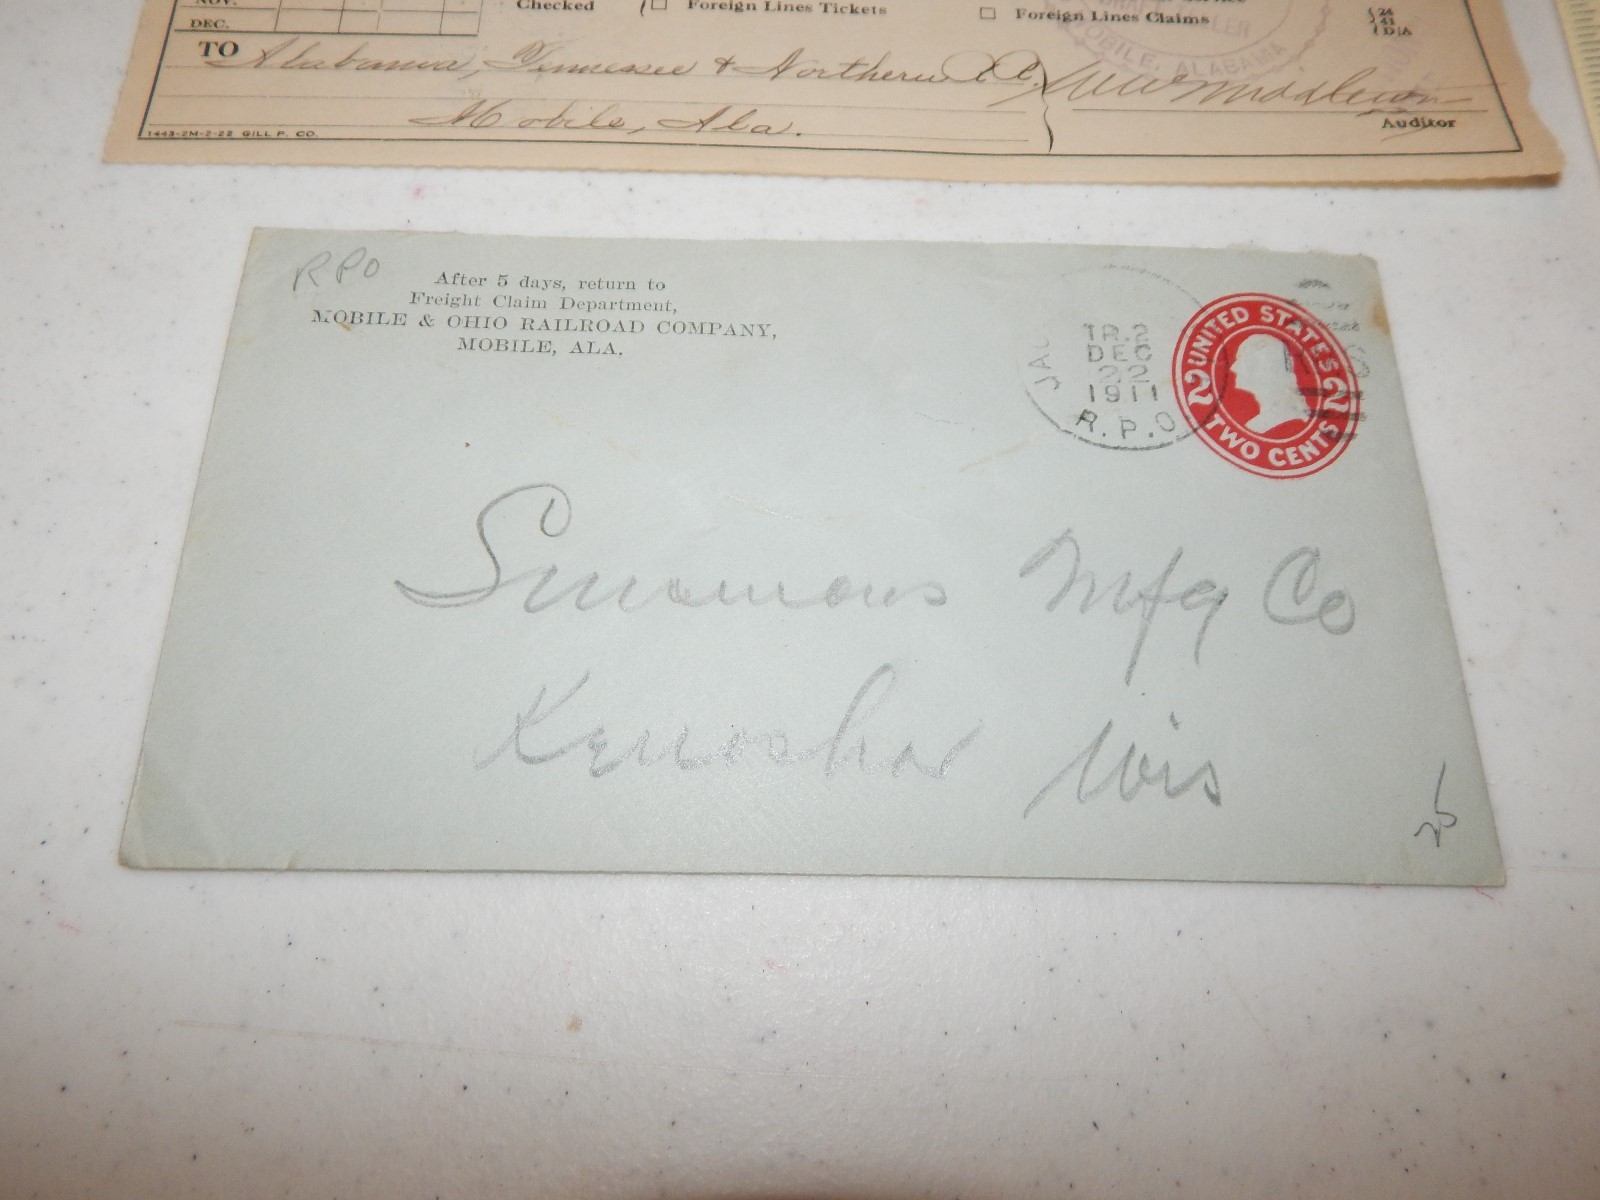 NOV.
DEC.
Checked
Foreign Lines Tickets
Foreign Lines Claims
24
41
D|A
TO Alabama, Tennessee & Northern
Mobile, Ala.
Auditor
MOBILE, ALABAMA
1443-2M-2-22 GILL P. CO.
RPO
After 5 days, return to
Freight Claim Department,
MOBILE & OHIO RAILROAD COMPANY,
MOBILE, ALA.
JAC
TR. 2
DEC
22
1911
R.P.O
UNITED STATES
2 2
TWO CENTS
Simmons Mfg Co
Kenosha Wis